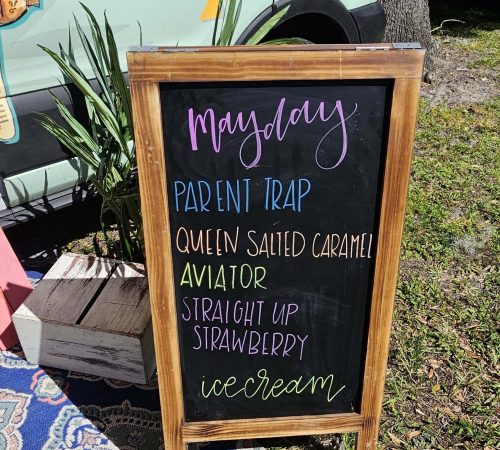 mayday
PARENT TRAP
QUEEN SALTED CARAMEL
AVIATOR
STRAIGHT UP
STRAWBERRY
icecream